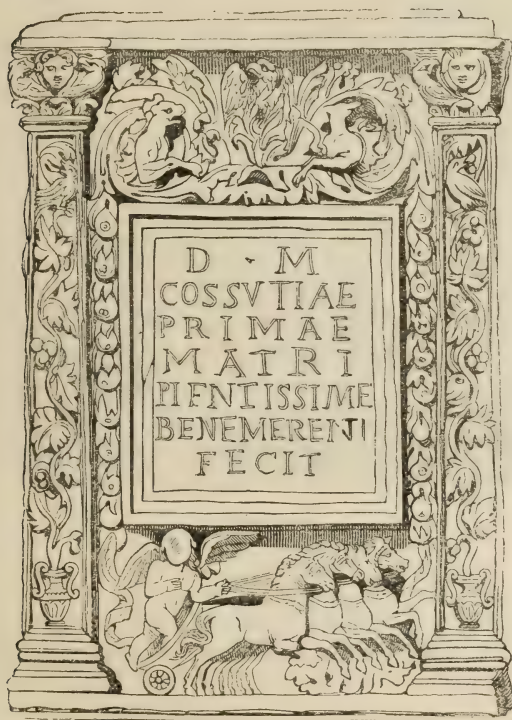 D · M
COSSVTIAE
PRIMAE
MATRI
PIENTISSIME
BENEMERENTI
FECIT